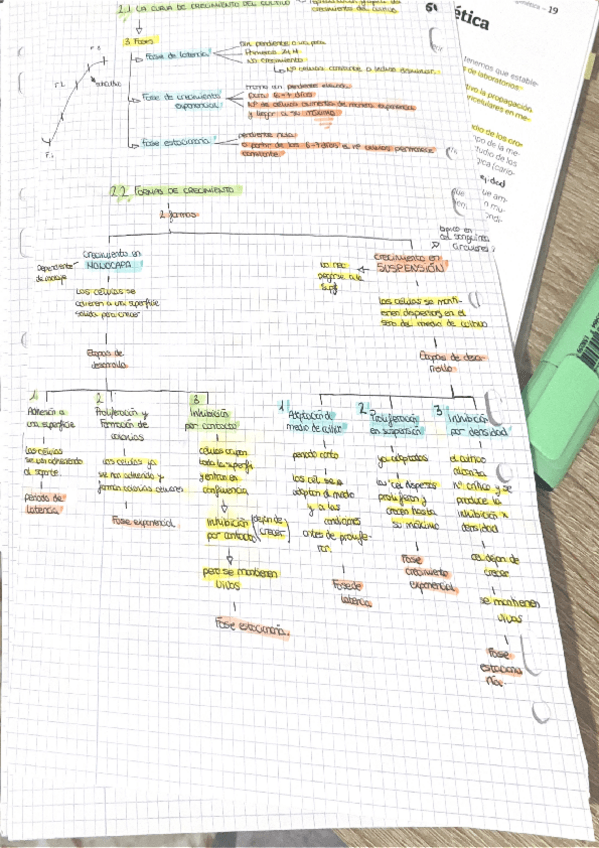 2.1 LA CURVA DE CRECIMIENTO DEL CULTIVO
crecimiento del cultivo
3 Fases
Fase de latencia
Sin pendiente o
Primeras 24 H
NO crecimiento
Nº células constante o incluso disminuir.
Fase de crecimiento
exponencial
pendiente
Dura 6-7 días
Nº de células aumenta de manera exponencial
y llegar a su máximo
Fase estacionaria
pendiente nula
a partir de los 6-7 días el nº células permanece
constante.
2.2 FORMAS DE CRECIMIENTO
2 formas
Crecimiento en
MONOCAPA
Dependiente
de anclaje
Las células se
adhieren a una superficie
sólida para crecer
Etapas de
desarrollo
1
Adhesión a
una superficie
Las células
se van adhiriendo
al soporte.
periodo de
latencia
2
Proliferación y
Formación de
colonias
Las células ya
se han adherido y
forman colonias celulares
Fase exponencial
3
Inhibición
por contacto
células ocupan
toda la superfi
y entran en
confluencia
Inhibición
por contacto
(dejan de
crecer)
pero se mantienen
vivas
Fase estacionaria.
típico en
cel sanguíneas
circulantes
Crecimiento en
SUSPENSIÓN
no nec
pegarse a la
superf
Las células se manti-
enen dispersas en el
seno del medio de cultivo
Etapas de desa-
rrollo
1
Adaptación al
medio de cultivo
periodo corto
las cél se
adaptan al medio
y a las
condiciones
antes de prolife-
rar.
Fase de
latencia
2
Proliferación
en suspensión
ya adaptadas
las cel dispersas
proliferan y
crecen hasta
su máximo
Fase
crecimiento
exponencial
3
Inhibición
por densidad
el cultivo
alcanza
nº crítico y se
produce la
inhibición x
densidad
cel dejan de
crecer
se mantienen
vivas
Fase
estaciona
ria.
ética
19
tenemos que estable-
de laboratorios
tivo la propagación
ncelulares en me-
dio de los cro-
po de la me-
tudio de los